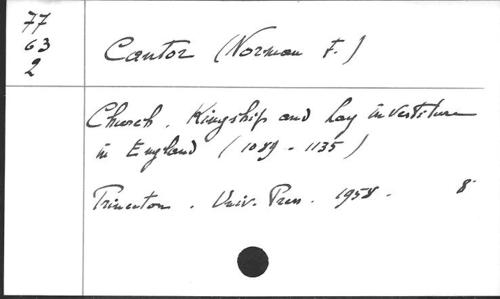 77
63
2
Cantor (Norman F.)
Church, Kingship and lay investiture
in England (1089-1135)
Princeton. Univ. Press. 1958. 8°